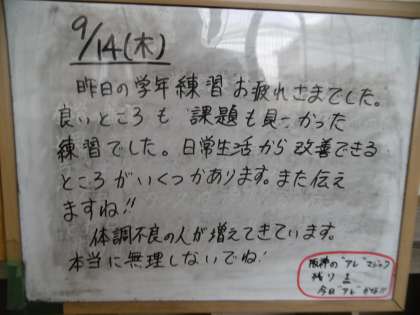 9/14(木)
昨日の学年練習お疲れさまでした。
良いところも課題も見つかった
練習でした。日常生活から改善できる
ところがいくつかあります。また伝え
ますね!!
体調不良の人が増えてきています。
本当に無理しないでね!
阪神の"アレ"マジック
残り1
今日"アレ"かな!!